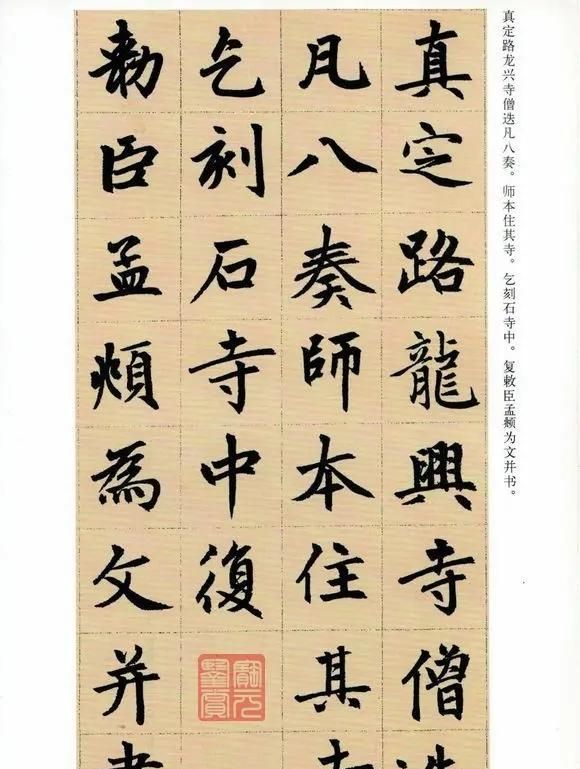 真定路龙兴寺僧迭凡八奏。师本住其寺。乞刻石寺中。复敕臣孟頫为文并书。
真定路龍興寺僧
凡八奏師本住其
乞刻石寺中復
勅臣孟頫為文并
寶元
鑒賞